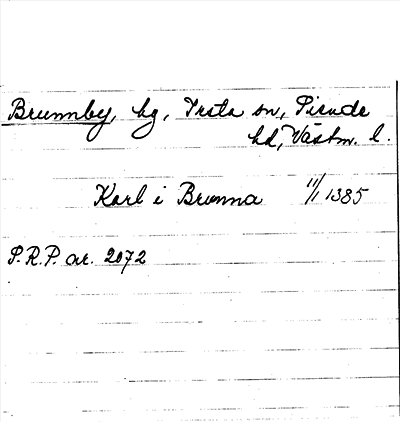 Brunnby, by, Irsta sn, Siende
hd, Västm. l.
Karl i Brunna 11/1 1385
S.R.P. nr. 2072